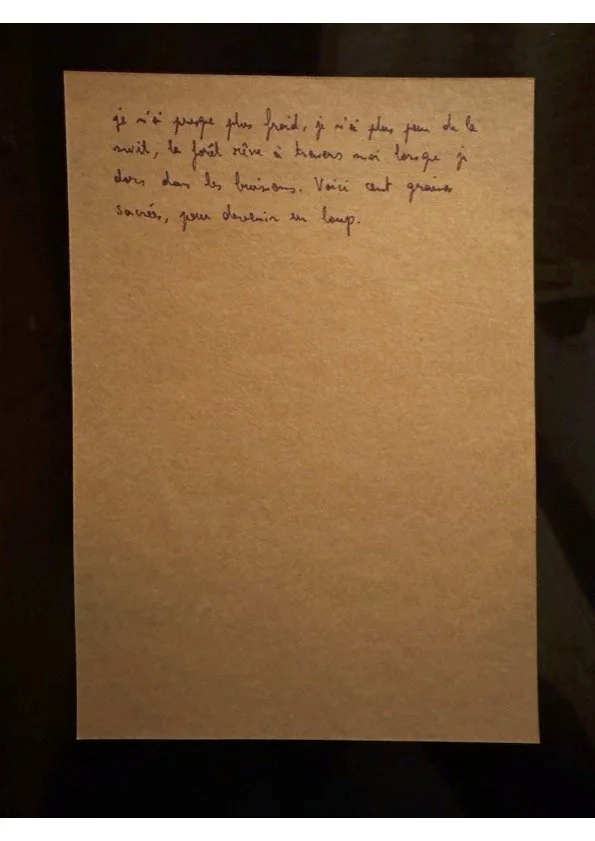 je n'ai presque plus froid, je n'ai plus peur de la
nuit, la forêt rêve à travers moi lorsque je
dors dans les buissons. Voici cent graines
sacrées, pour devenir un loup.